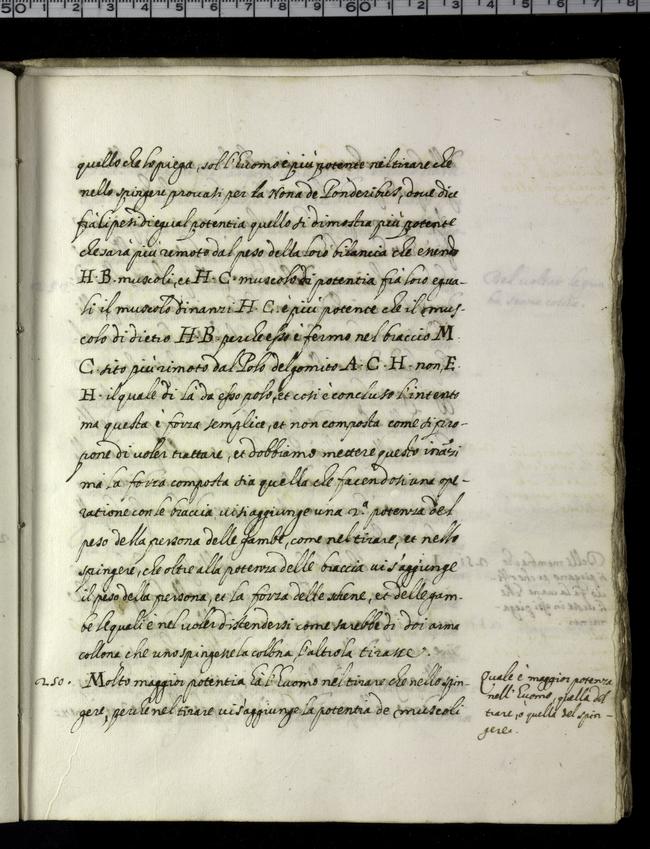 quello che lo piega, sol l'huomo è più potente nel tirare che
nello spingere provasi per la Nona de Ponderibus, dove dice
fra li pesi di equal potentia quello si dimostra più potente
che sarà più remoto dal peso della loro bilancia che essendo
H. B. muscoli, et H. C. muscolo di potentia fra loro equa-
li il muscolo dinanzi H. C. è più potente che il mus-
colo di dietro H. B. perche esso è fermo nel braccio M.
C. sito più rimoto dal Polo del gomito A. C. H. non E.
H. il quale di là da esso polo, et così è concluso l'intento
ma questa è forza semplice, et non composta come si pro-
pone di voler trattare, et dobbiamo mettere questo inãzi
ma la forza composta sia quella che facendosi una ope-
ratione con le braccia vi si aggiunge una 2ª potenza del
peso della persona delle gambe, come nel tirare, et nello
spingere, che oltre alla potenza delle braccia vi s'aggiunge
il peso della persona, et la forza delle schene, et delle gam-
be le quali è nel voler distendersi come sarebbe di doi a una
collona che uno spingesse la collõna, l'altro la tirasse.
250. Molto maggior potentia hà l'huomo nel tirare che nello spin-
gere, perche nel tirare vi s'aggiunge la potentia de muscoli
Quale è maggior potenza
nell'huomo, q̃lla del
tirare, o quella del spin-
gere.